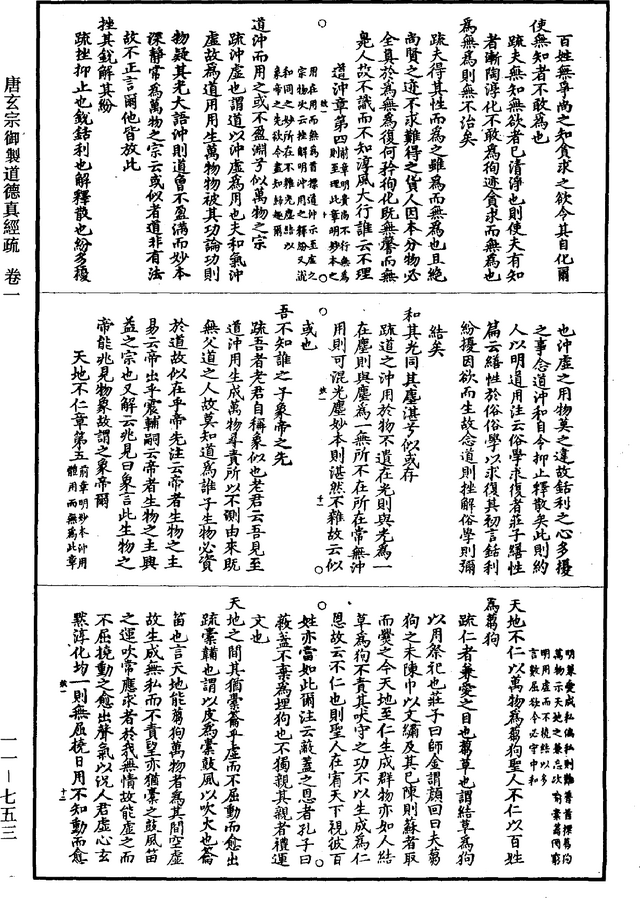 百姓無爭尚之知貪求之欲令其自化爾
使無知者不敢爲也
疏夫無知無欲者已清淨也則使夫有知
者漸陶淳化不敢爲徇迹貪求而無爲也
爲無爲則無不治矣
疏夫得其性而爲之雖爲而無爲也且絶
尚賢之迹不求難得之貨人因本分物必
全真於爲無爲復何矜徇化既無馨而無
臭人故不識而不知淳風大行誰云不理
道沖章第四
前章明貴尚不行無爲
則至理此章明妙本之
用在用而無爲首標道沖示至虛之
宗物次云挫解明沖用之釋紛又說
和同之妙所在不雜光塵結以
象帝之先欲令盡知歸趣爾
道沖而用之或不盈淵乎似萬物之宗
疏沖虛也謂道以沖虛爲用也夫和氣沖
虛故爲道用用生萬物物被其功論功則
物疑其光大語沖則道曾不盈滿而妙本
深静常爲萬物之宗云或似者道非有法
故不正言爾他皆放此
挫其鋭解其紛
疏挫抑止也鋭銛利也解釋散也紛多擾
也沖虛之用物莫之違故銛利之心多擾
之事念道沖和自令抑止釋散矣此則約
人以明道用注云俗學求復者莊子繕性
篇云繕性於俗俗學以求復其初言銛利
紛擾因欲而生故念道則挫解俗學則彌
結矣
和其光同其塵湛兮似或存
疏道之沖用於物不遺在光則與光爲一
在塵則與塵爲一無所不在所在常無沖
用則可混光塵妙本則湛然不雜故云似
或也
吾不知誰之子象帝之先
疏吾者老君自稱象似也老君云吾見至
道沖用生成萬物尋責所以不測由來既
無父道之人故莫知道爲誰子生物必資
於道故似在乎帝先注云帝者生物之主
易云帝出乎震輔嗣云帝者生物之主興
益之宗也又解云兆見曰象言此生物之
帝能兆見物象故謂之象帝爾
天地不仁章第五
前章明妙本沖用
體用而無爲此章
明兼愛成私偏私則難
萬物示天地之兼忘次
明用虛而不撓結以多
言數屈欲令必守中和
天地不仁以萬物爲芻狗聖人不仁以百姓
爲芻狗
疏仁者兼愛之目也芻草也謂結草爲狗
以用祭祀也莊子曰師金謂顔回曰夫芻
狗之未陳巾以文繡及其已陳則蘇者取
而爨之今天地至仁生成群物亦如人結
草爲狗不責其吠守之功不以生成爲仁
恩故云不仁也則聖人在宥天下視彼百
姓亦當如此爾注云蔽蓋之恩者孔子曰
蔽蓋不棄爲埋狗也不獨親其親者禮運
文也
天地之間其猶橐籥乎虛而不屈動而愈出
疏橐韛也謂以皮爲橐鼓風以吹火也籥
笛也言天地能芻狗萬物者爲其間空虛
故生成無私而不責望亦猶橐之鼓風笛
之運吹常應求者於我無情故能虛之而
不屈撓動之愈出聲氣以況人君虛心玄
默淳化均一則無屈撓日用不知動而愈
唐玄宗御製道德真經疏 卷一
一一—七五三